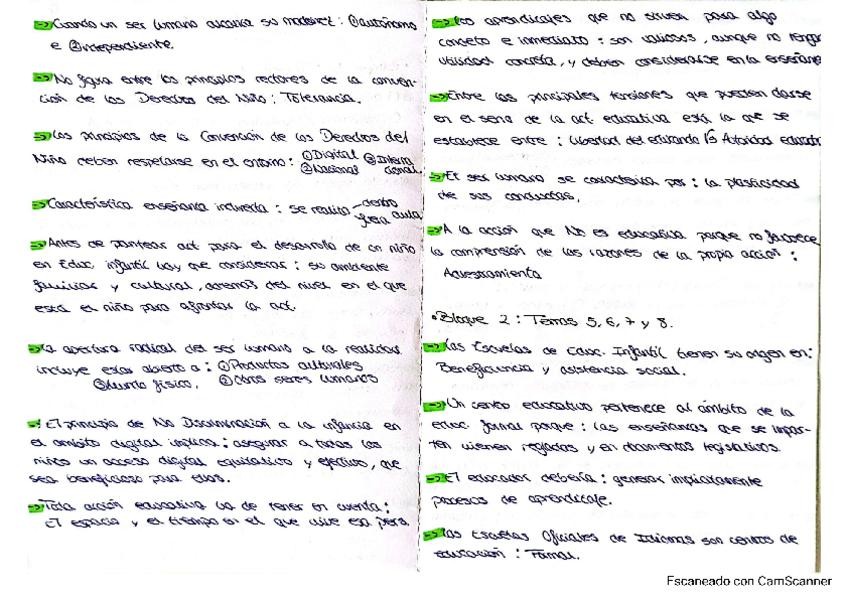 → Cuando un ser humano alcanza su madurez: ① autónomo
e ② independiente.
→ No figura entre los principios rectores de la conven-
ción de los Derechos del Niño: Tolerancia.
→ Los principios de la Convención de los Derechos del
Niño deben respetarse en el entorno: ① Digital ③ Interna
② Nacional cional
→ Característica enseñanza indirecta: se realiza dentro
fuera aula
→ Antes de plantear act para el desarrollo de un niño
en Educ. infantil hay que considerar: su ambiente
familiar y cultural, además del nivel en el que
está el niño para afrontar la act.
→ La apertura radical del ser humano a la realidad
incluye estar abierto a: ① Productos culturales
② Mundo físico, ③ Otros seres humanos
→ El principio de No Discriminación a la infancia en
el ámbito digital implica: asegurar a todos los
niños un acceso digital equitativo y efectivo, que
sea beneficioso para ellos.
→ Toda acción educativa ha de tener en cuenta:
El espacio y el tiempo en el que vive esa pers
→ Los aprendizajes que no sirven para algo
concreto e inmediato: son valiosos, aunque no tengan
utilidad concreta, y deben considerarse en la enseñan
→ Entre las principales tensiones que pueden darse
en el seno de la act. educativa está la que se
establece entre: Libertad del educando vs Autoridad educador
→ El ser humano se caracteriza por: la plasticidad
de sus conductas.
→ A la acción que No es educativa porque no favorece
la comprensión de las razones de la propia acción:
Adiestramiento
• Bloque 2: Temas 5, 6, 7 y 8.
→ Las Escuelas de Educ. Infantil tienen su origen en:
Beneficiencia y asistencia social.
→ Un centro educativo pertenece al ámbito de la
educ. formal porque: las enseñanzas que se impar-
ten vienen regladas y en documentos legislativos.
→ El educador debería: generar implícitamente
procesos de aprendizaje.
→ Las Escuelas Oficiales de Idiomas son centros de
educación: Formal.
Escaneado con CamScanner